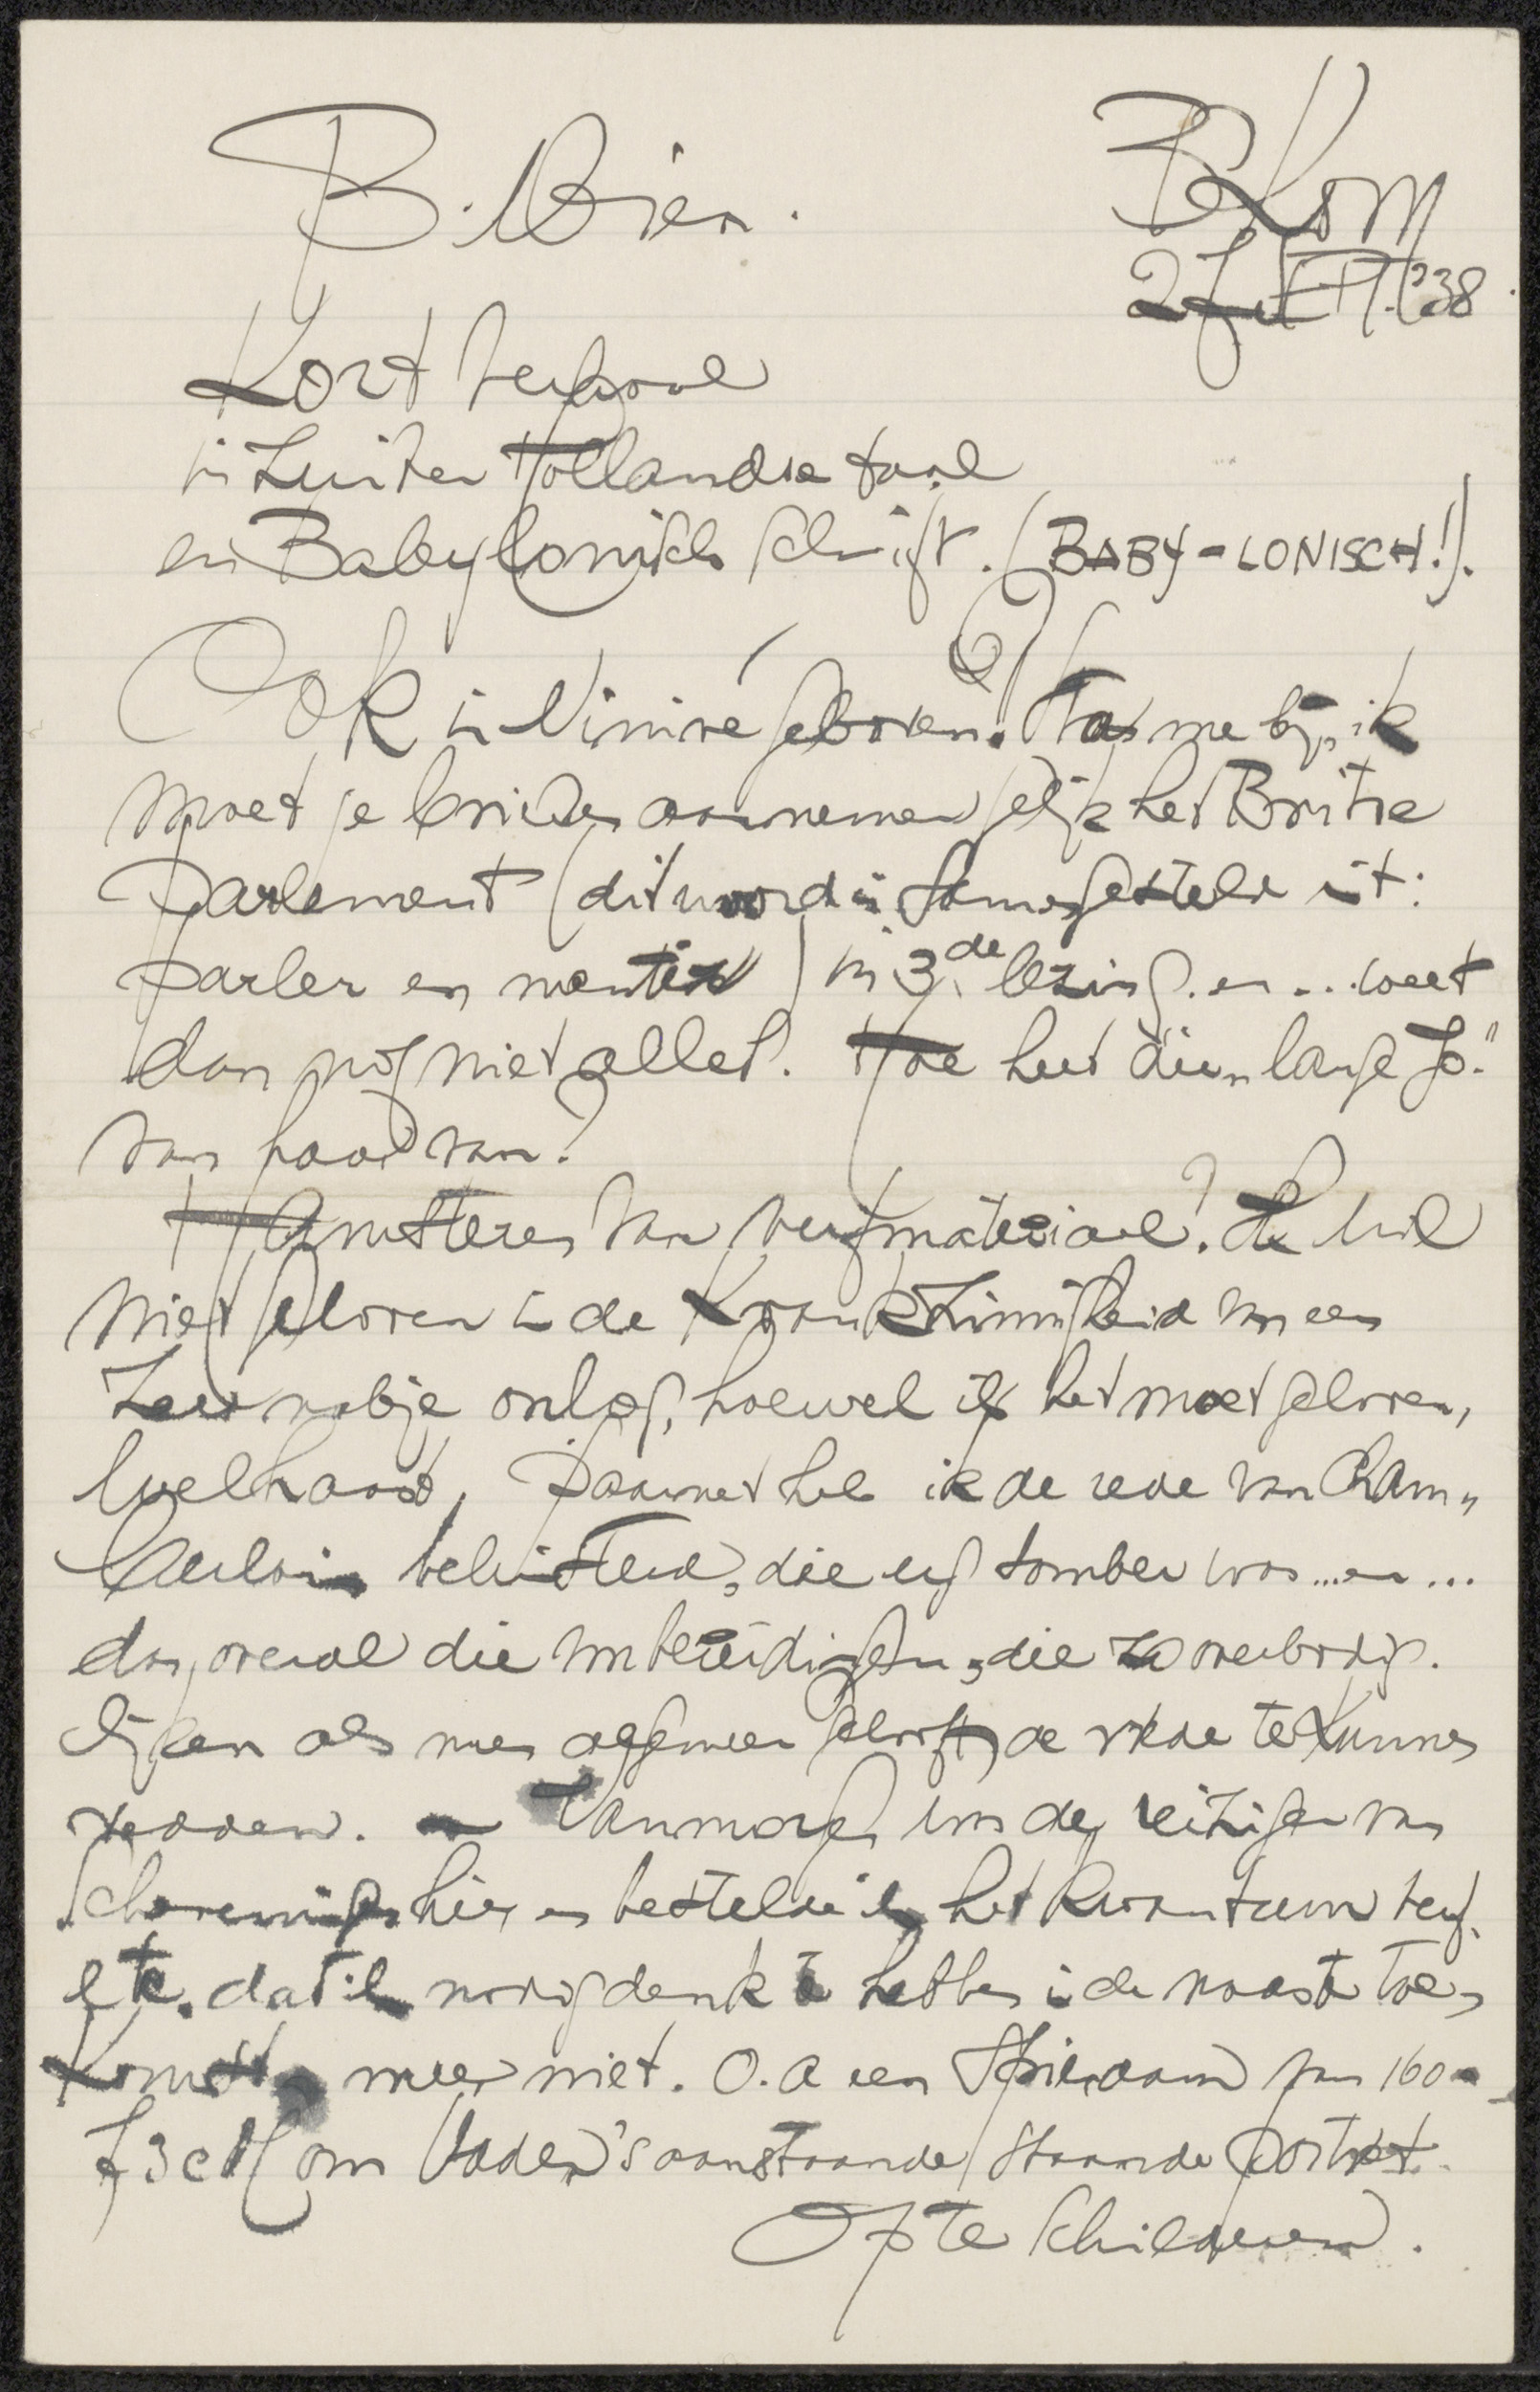 B. Brien.
Blom
27 SEPT. '38.
Kort verhaal
in zuiver Hollandse taal
en Babylonisch schrift. (BABY-LONISCH!).
Ook in Ninivé geboren? Ha, me bij, ik
moet je brieven aannemen gelijk het Britse
Parlement (dit woord is samengesteld uit:
parler en mentir) in 3de lezing en ... weet
dan nog niet alles. Hoe heet die lange Jo."
van haar van?
Hamsteren van verfmateriaal? Ik wil
niet geloven in de krankzinnigheid van een
zeer nabije oorlog, hoewel ik het moet geloven,
welhaast. Daarnet heb ik de rede van Cham„
berlain beluisterd, die erg somber was ... en ...
dan overal die verdedigingen, die zo overbodig
lijken als men algemeen gelooft de vrede te kunnen
redden. Vanmorgen was de reiziger van
Scheveningen hier en bestelde ik het kwantum verf
etc. dat ik nodig denk te hebben in de naaste toe„
komst, meer niet. O.a. een spieraam van 160
om Vader's aanstaande staande portret
Op te schilderen.